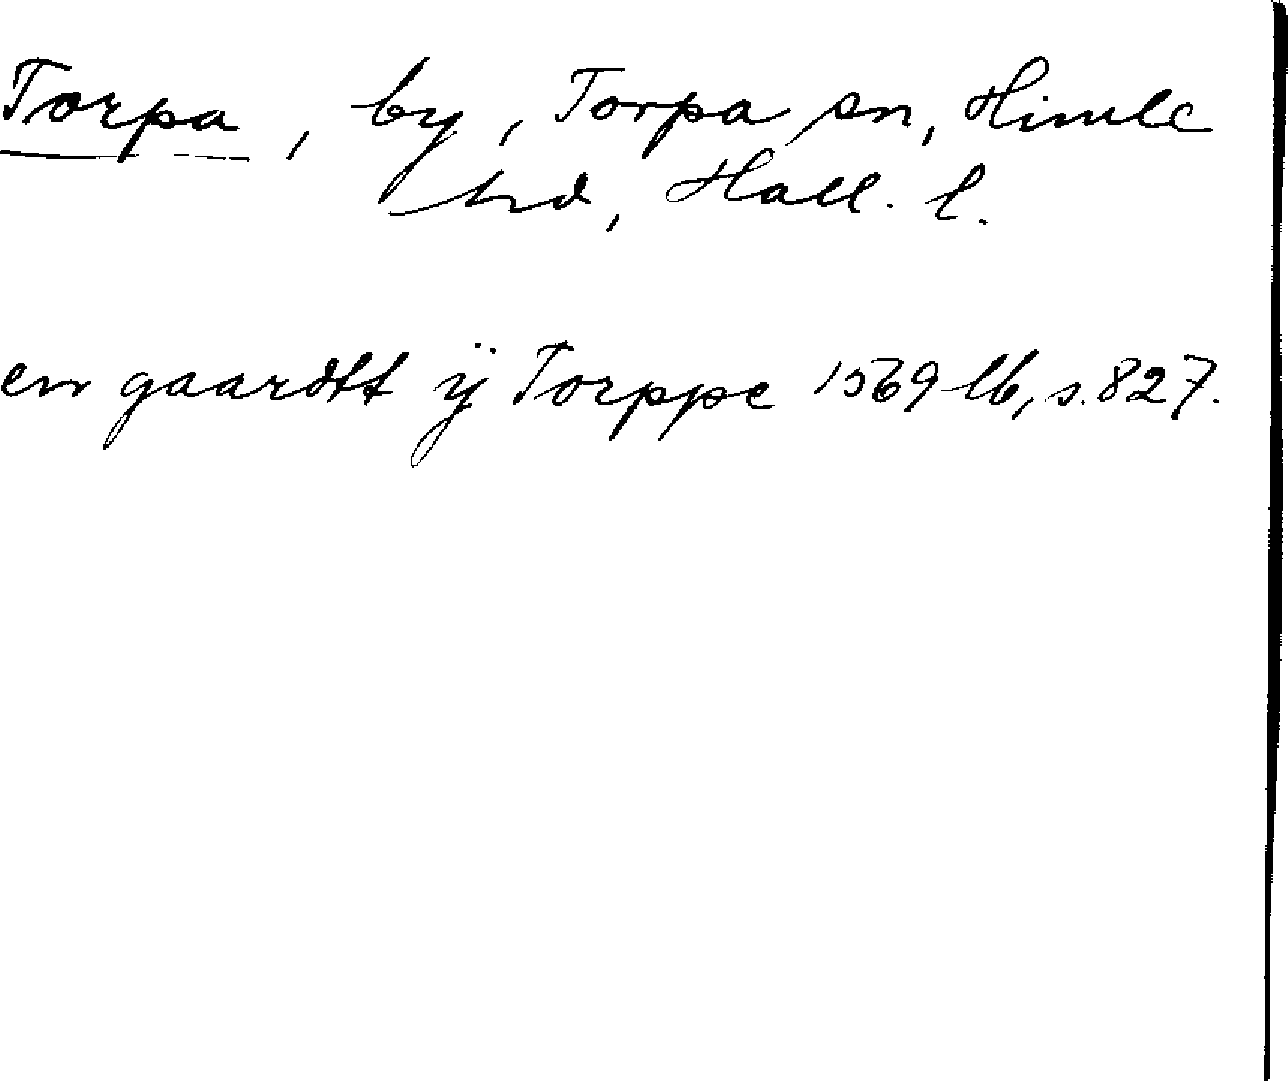 Torpa, by, Torpa sn, Himle
hd, Hall. l.
en gaardtt ÿ Torppe 1569 lb, s. 827.